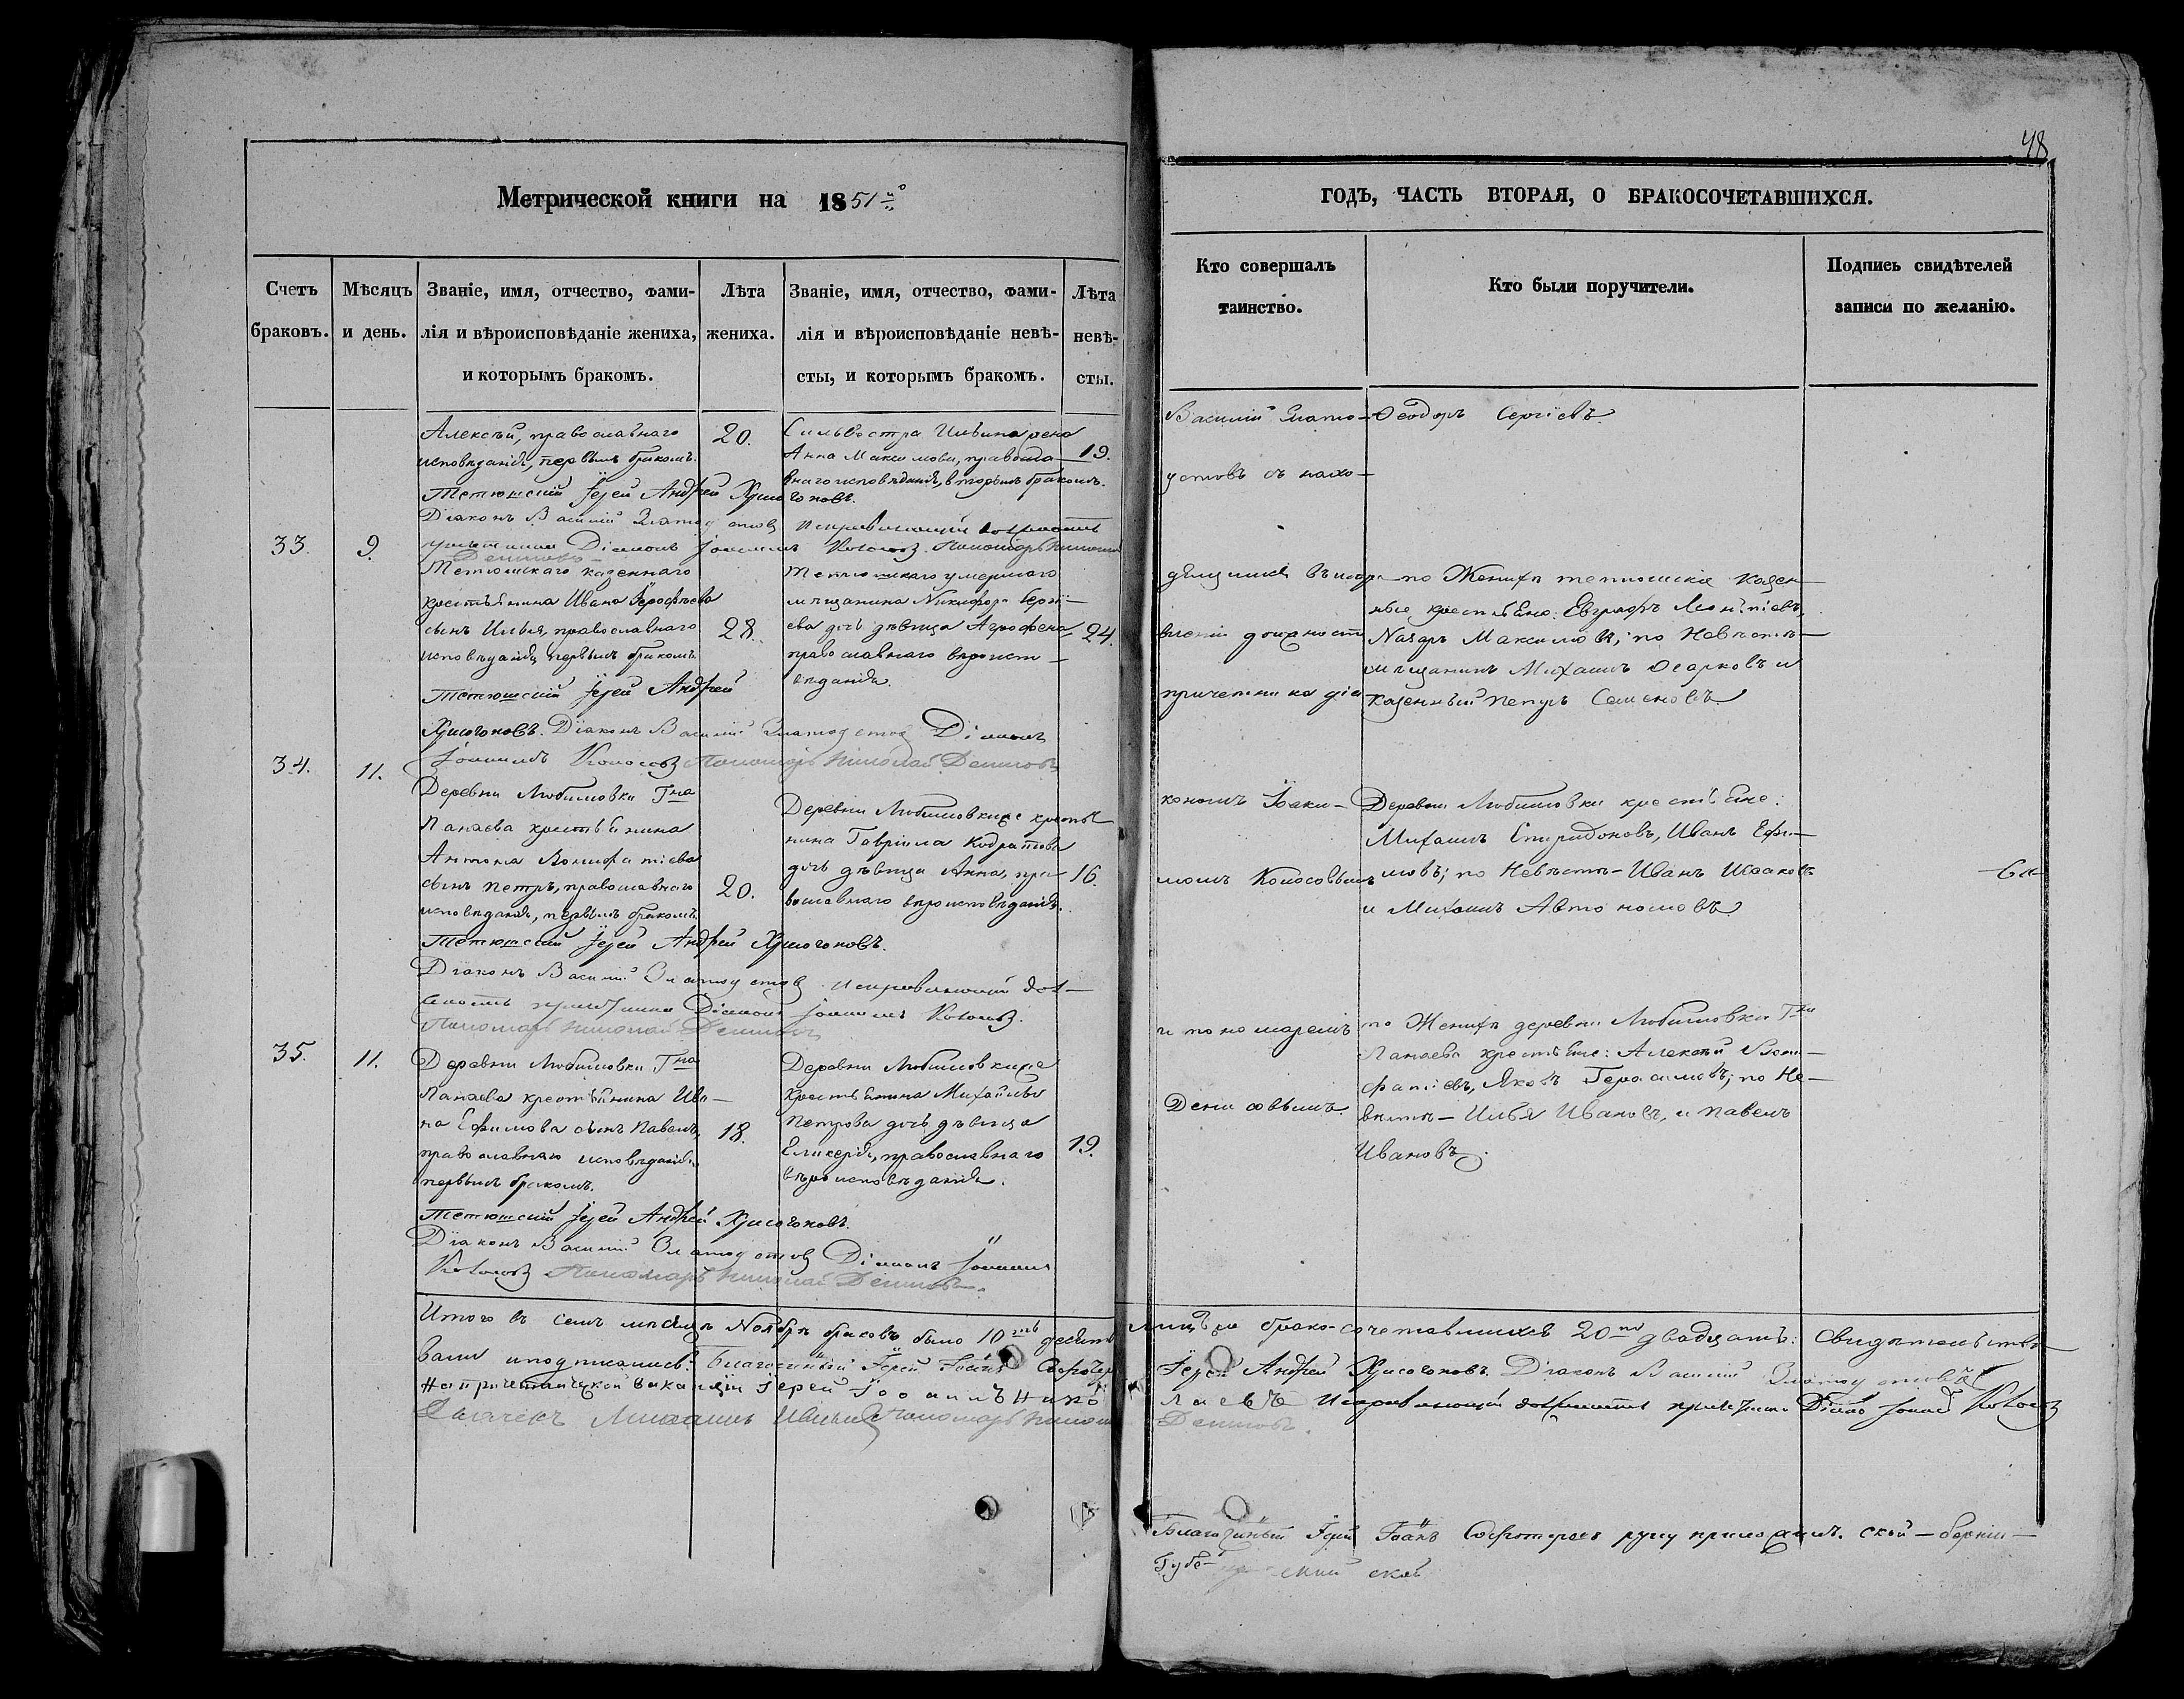 48
Метрической книги на 1851й
ГОДЪ, ЧАСТЬ ВТОРАЯ, О БРАКОСОЧЕТАВШИХСЯ.
Счетъ
браковъ.
Мѣсяцъ
и день.
Званіе, имя, отчество, фами-
лія и вѣроисповѣданіе жениха,
и которымъ бракомъ.
Лѣта
жениха.
Званіе, имя, отчество, фами-
лія и вѣроисповѣданіе невѣ-
сты, и которымъ бракомъ.
Лѣта
невѣ-
сты.
Кто совершалъ
таинство.
Кто были поручители.
Подпись свидѣтелей
записи по желанію.
Алексѣй, православнаго
исповѣданія, первымъ бракомъ.
20.
Сильвестра Ильина
Анна Максимова, правосла-
внаго исповѣданія, вторымъ бракомъ.
19.
Тетюшскій Іерей Андрей Хрисогоновъ.
Діаконъ Василій Златоустовъ Исправляющій должность
причетника Діаконъ Колосовъ. Пономарь Николай
Денисовъ
33.
9.
Тетюшскаго казеннаго
крестьянина Ивана Іерофѣева
сынъ Илья, православнаго
исповѣданія, первымъ бракомъ.
28.
Тетюшскаго умершаго
мѣщанина Никифора Сергѣ-
ева дочь дѣвица Агрофена
православнаго вѣроиспо-
вѣданія.
24.
Тетюшскій Іерей Андрей
Хрисогоновъ. Діаконъ Василій Златоустовъ Діаконъ
Колосовъ Пономарь Николай Денисовъ
34.
11.
Деревни Любимовки Гна
Панаева крестьянина
Антона Вонифатіева
сынъ Петръ, православнаго
исповѣданія, первымъ бракомъ.
20.
Деревни Любимовки же крестья-
нина Гавріила Кодратова
дочь дѣвица Анна, пра-
вославнаго вѣроисповѣданія.
16.
Тетюшскій Іерей Андрей Хрисогоновъ.
Діаконъ Василій Златоустовъ. Исправляющій дол-
жность причетника Діаконъ Колосовъ.
Пономарь Николай Денисовъ
35.
11.
Деревни Любимовки Гна
Панаева крестьянина Ива-
на Ефимова сынъ Павелъ,
православнаго исповѣданія,
первымъ бракомъ.
18.
Деревни Любимовки же
крестьянина Михайлы
Петрова дочь дѣвица
Гликерія, православнаго
вѣроисповѣданія.
19.
Тетюшскій Іерей Андрей Хрисогоновъ.
Діаконъ Василій Златоустовъ Діаконъ
Колосовъ Пономарь Николай Денисовъ.
Василій Злато-
устовъ съ нахо-
дящимся въ исправ-
вленіи должности
причетника діа-
кономъ Іоаки-
момъ Колосовымъ
и пономаремъ
Денисовымъ.
Ѳеодоръ Сергіевъ.
по Женихѣ тетюшскіе казен-
ные крестьяне: Евграфъ Леонтіевъ,
Назаръ Максимовъ; по Невѣстѣ-
мѣщанинъ Михаилъ Огарковъ и
казенный Петръ Семеновъ.
Деревни Любимовки крестьяне:
Михаилъ Спиридоновъ, Иванъ Ефи-
мовъ; по Невѣстѣ-Иванъ Исааковъ
и Михаилъ Автономовъ.
по Женихѣ деревни Любимовки Гна
Панаева крестьяне: Алексѣй Вони-
фатіевъ, Яковъ Герасимовъ; по Не-
вѣстѣ-Илья Ивановъ, и Павелъ
Ивановъ.
Итого въ семъ мѣсяцѣ Ноябрѣ браковъ было 10ть десять Лицъ же бракосочетавшихся 20ть двадцать: Свидѣтельство-
вали и подписались: Благочинный Іерей Іоаннъ Іерей Андрей Хрисогоновъ. Діаконъ Василій Златоустовъ
На причетнической ваканціи Іерей Николаевъ Исправляющій должность причетника Колосовъ
Дьячекъ Михаилъ Пономарь Николай Денисовъ.
Благочинный Іерей Іоаннъ руку приложилъ.